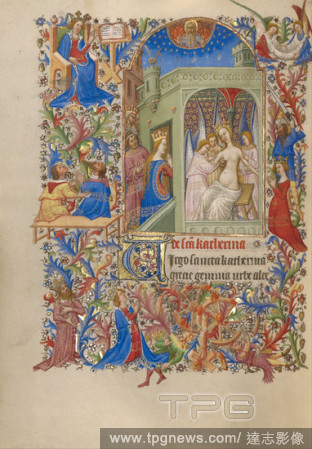 de sc̄a katherina
Virgo sancta katherina
grecie gemma urbe alex
TPG
www.tpgnews.com/達志影像